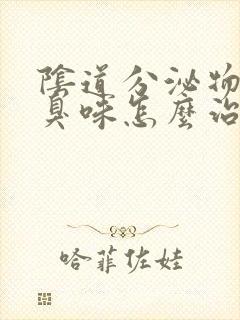 陰道分泌物
臭味怎麼治
哈菲佐娃